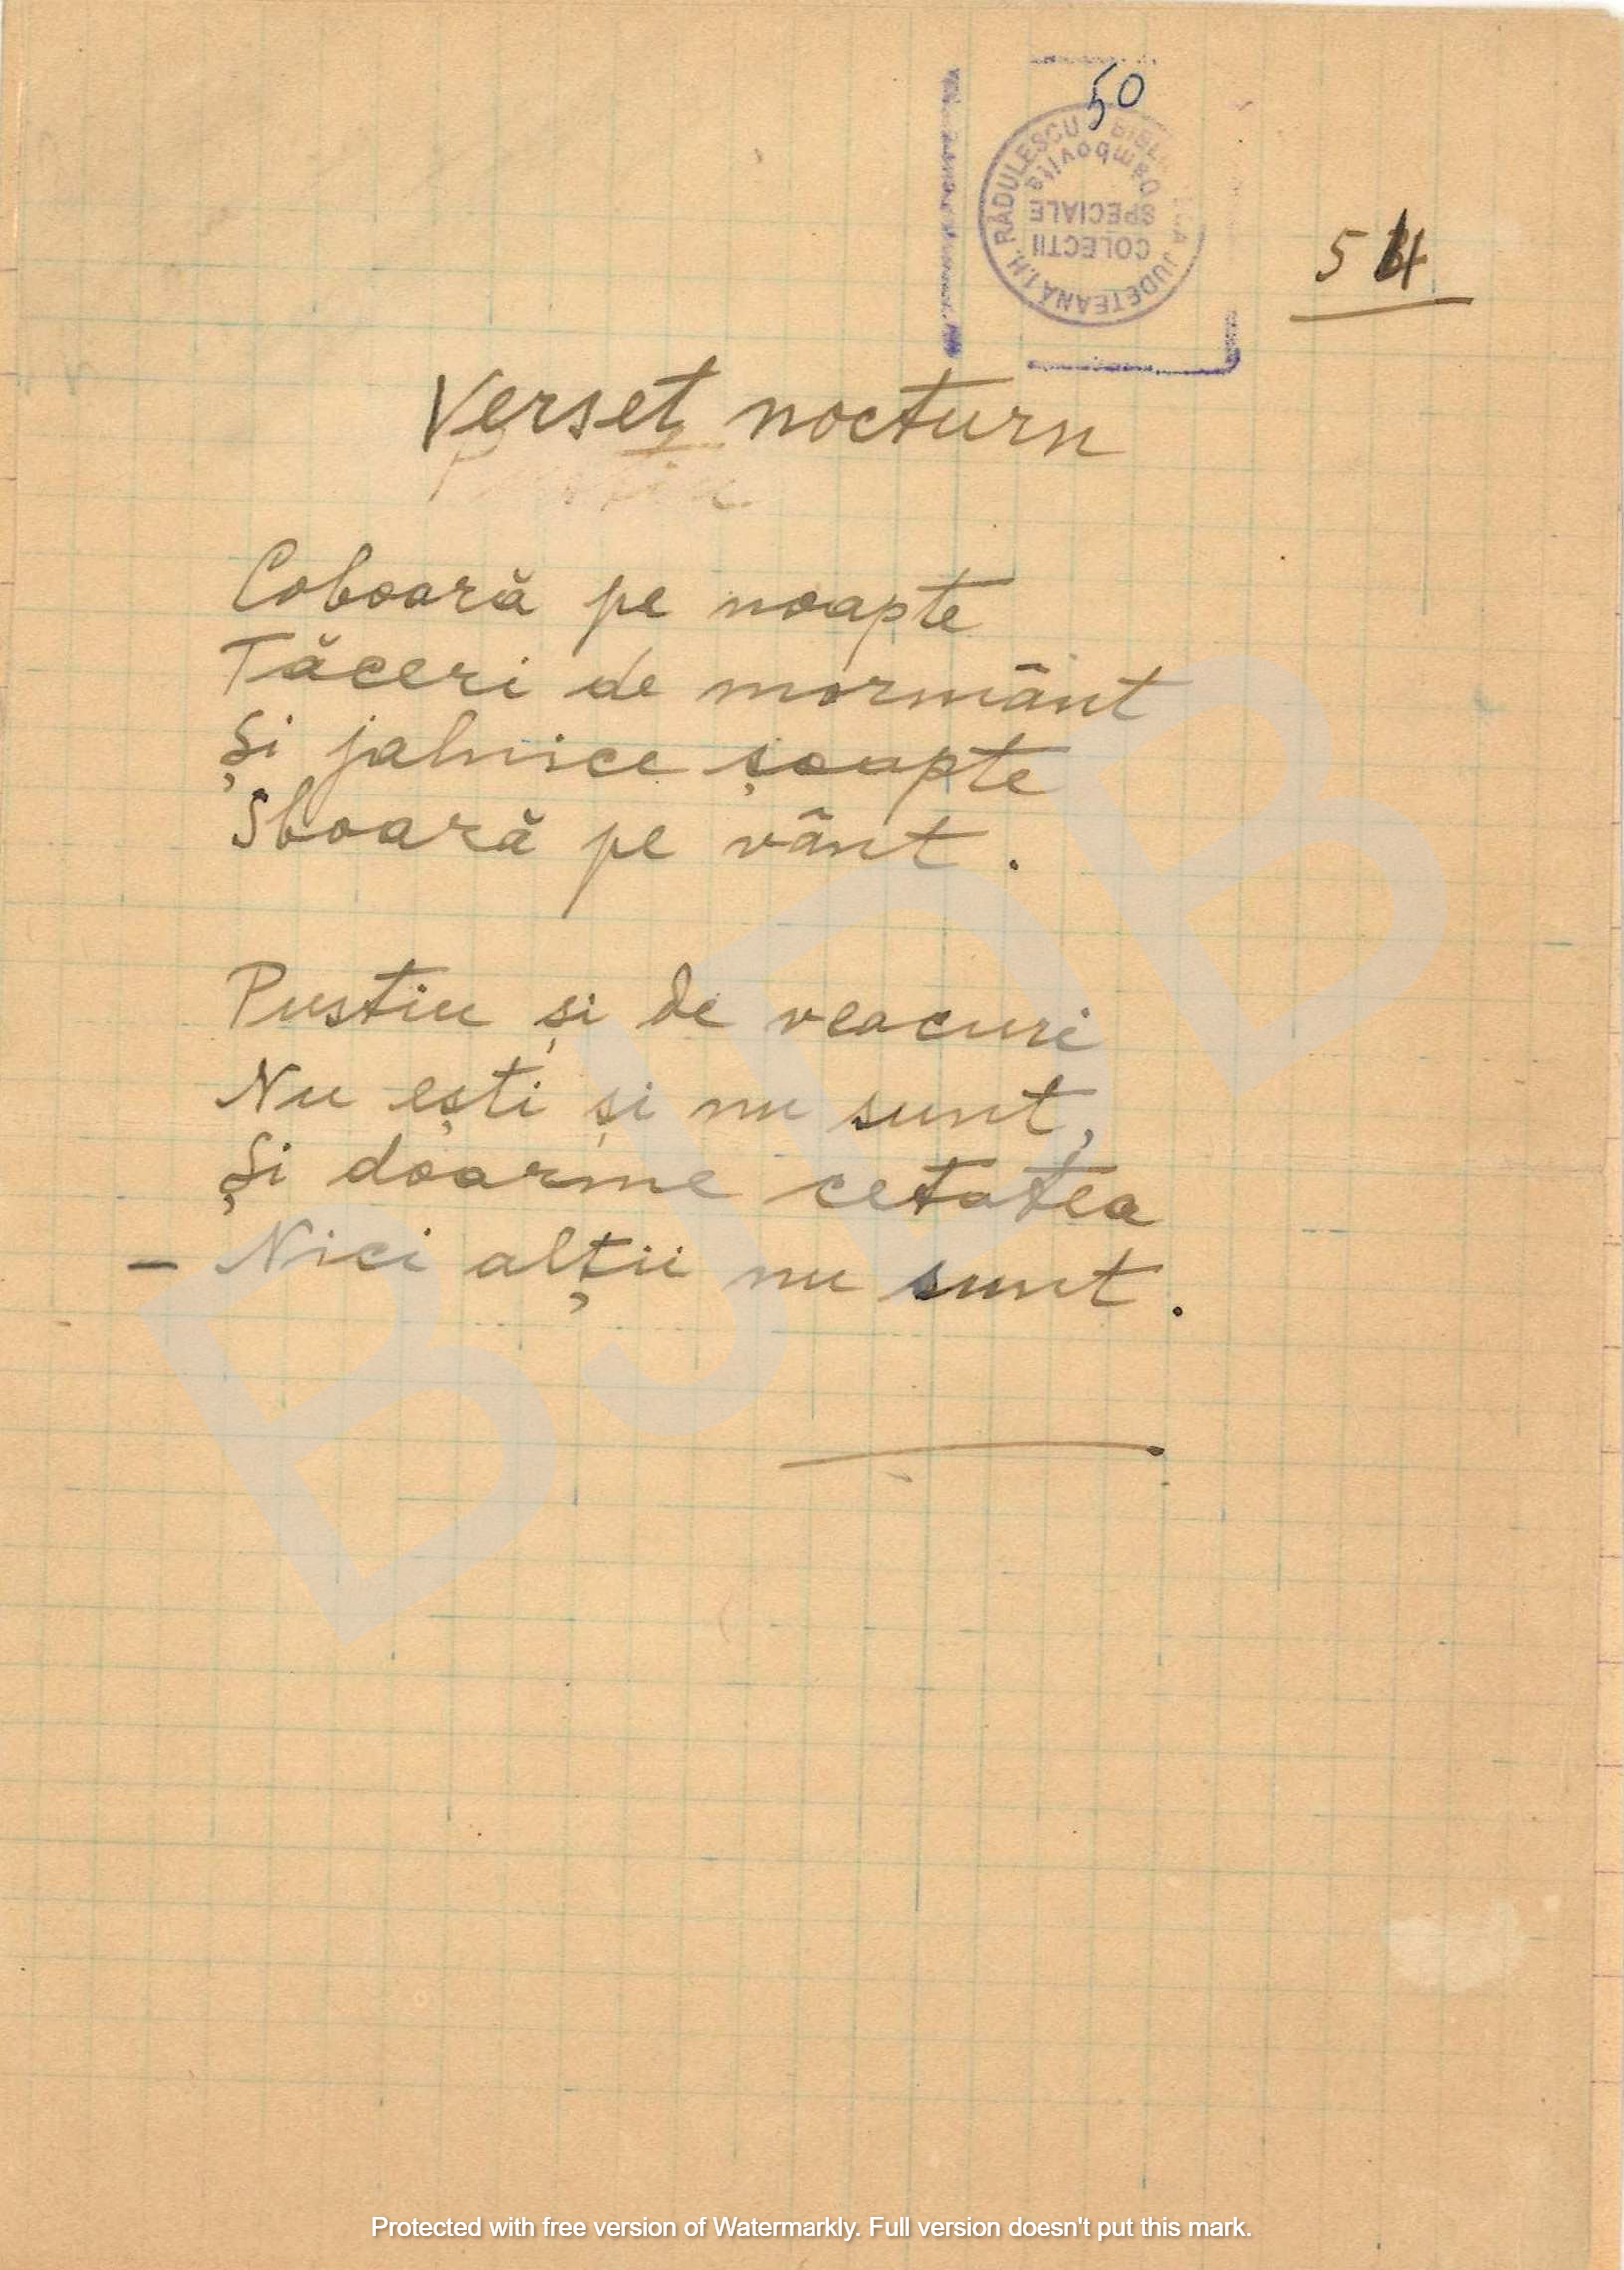 50
COLECTII
SPECIALE
Dambovita
BIBLIOTECA JUDETEANĂ I.H. RĂDULESCU
Verset nocturn
Coboară pe noapte
Tăceri de mormânt
Și jalnice șoapte
Sboară pe vânt.
Pustiu și de veacuri
Nu ești și nu sunt,
Și doarme cetatea
– Nici alții nu sunt.
BJDB
Protected with free version of Watermarkly. Full version doesn't put this mark.